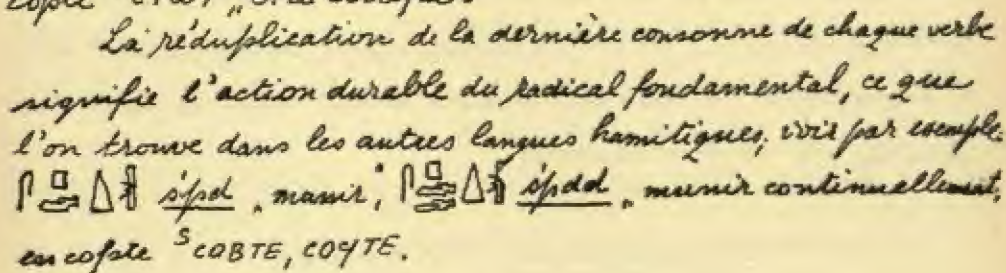 La réduplication de la dernière consonne de chaque verbe
signifie l'action durable du radical fondamental, ce que
l'on trouve dans les autres langues hamitiques; voir par exemple
śpd „munir", śpdd „munir continuellement",
en copte ˢCOBTE, COϤTE.